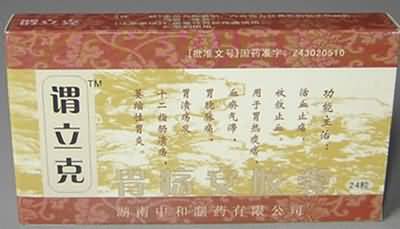 [批准文号]国药准字:Z43020510
谓立克™
功能主治:
活血止痛,
收敛止血。
用于胃热炽
血瘀气滞,
胃脘胀痛,
胃溃疡及
十二指肠溃疡,
萎缩性胃炎。
胃病安胶囊
24粒
湖南中和制药有限公司